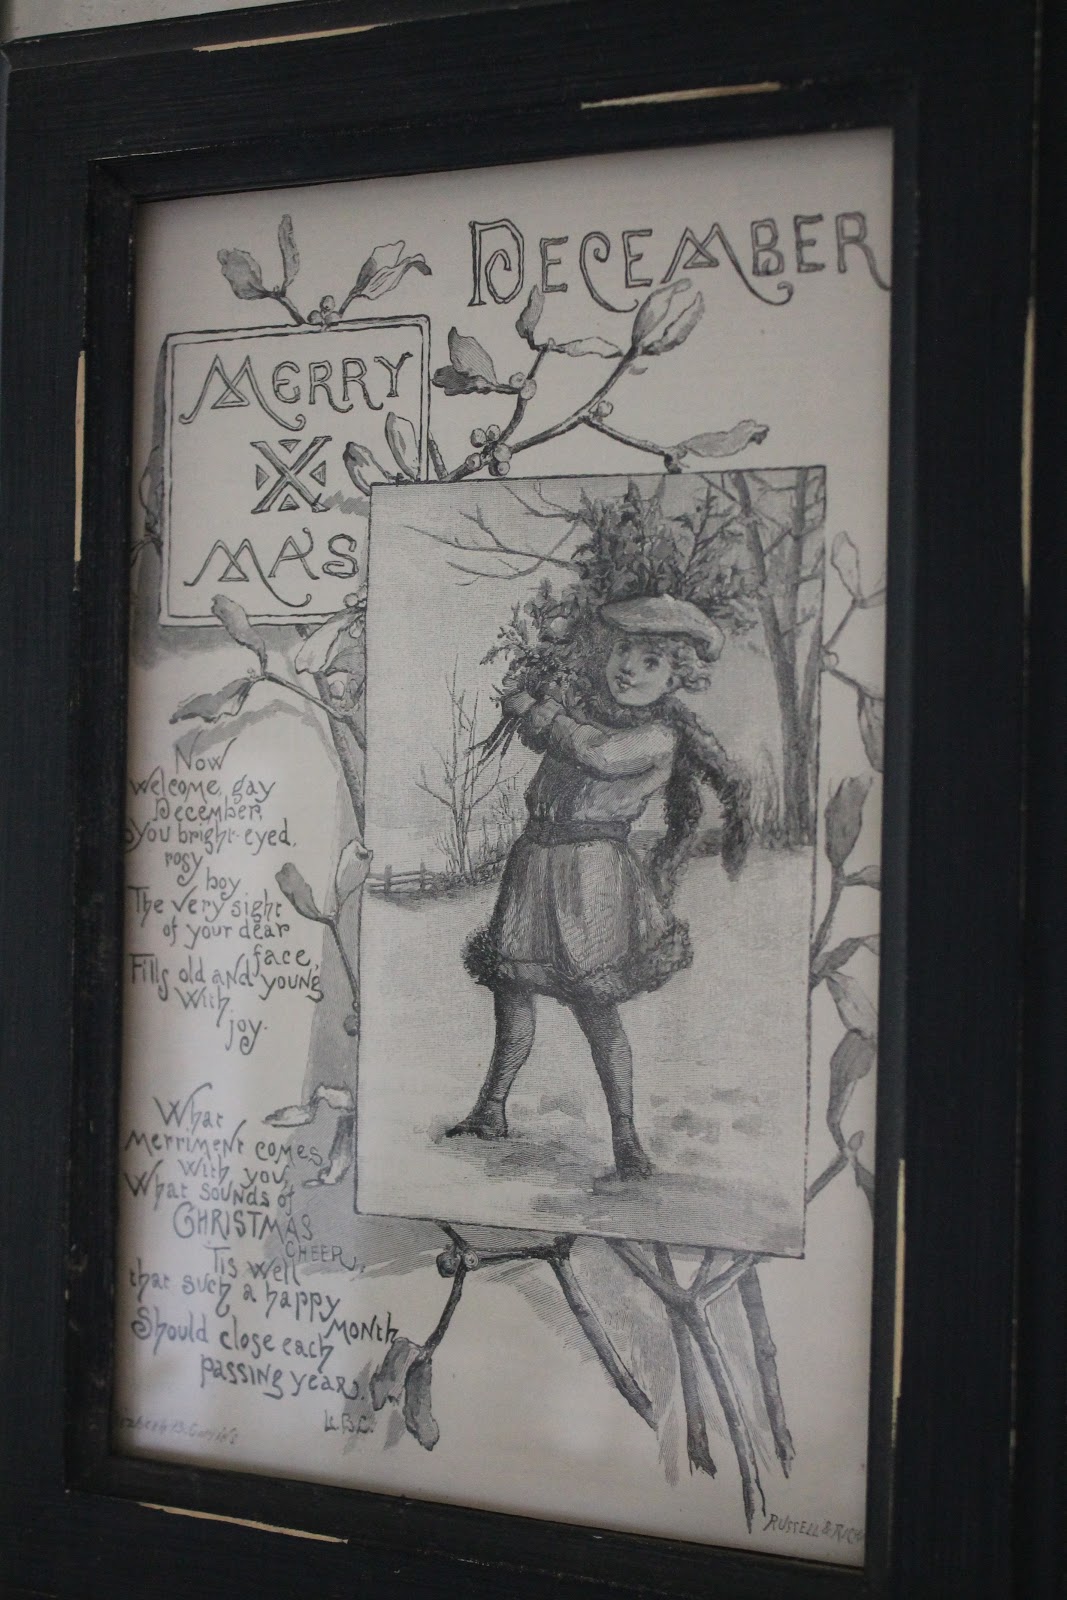 DECEMBER
MERRY
X
MA'S
Now
welcome, gay
December,
You bright-eyed,
rosy
boy
The very sight
of your dear
face,
Fills old and young
With
joy.
What
merriment comes
with you,
What sounds of
CHRISTMAS
CHEER,
Tis well
that such a happy
MONTH
Should close each
passing year.
RUSSELL &